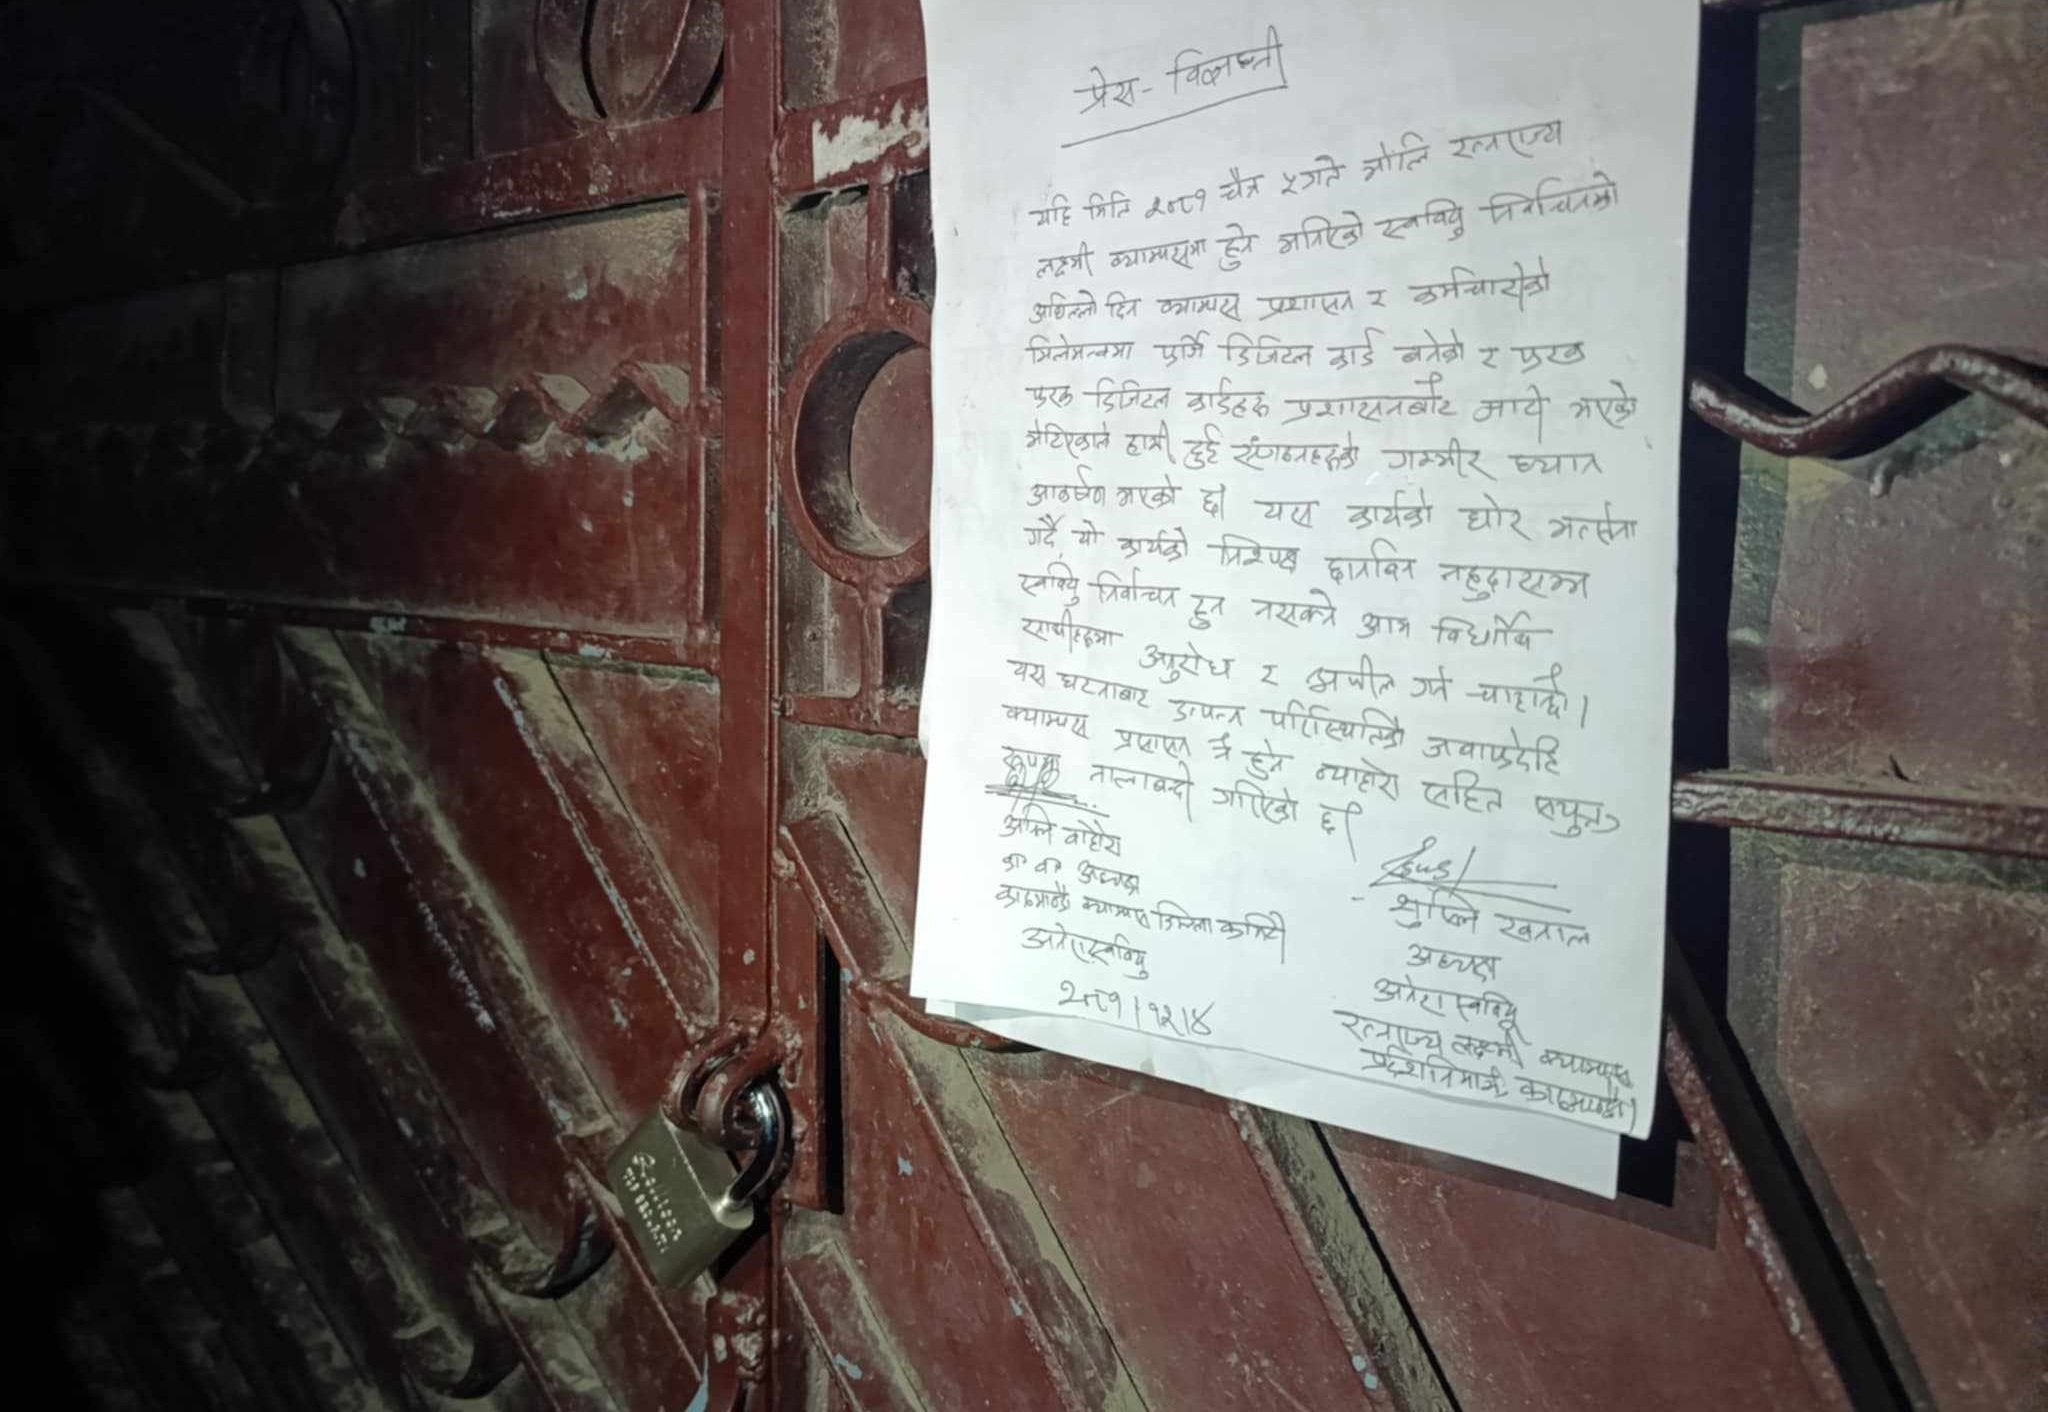 प्रेस-विज्ञप्ती
यहि मिति २०८१ चैत्र ५ गते भोलि रत्नराज्य
लक्ष्मी क्याम्पसमा हुने भनिएको स्ववियु निर्वाचनको
अघिल्लो दिन क्याम्पस प्रशासन र कर्मचारीको
मिलेमत्वमा फर्जि डिजिटल कार्ड बनेको र फरक
फरक डिजिटल कार्डहरू प्रशासनबाटै जारी भएको
भेटिएकाले हामी दुई संगठनहरूको गम्भीर ध्यान
आकर्षण भएको छ। यस कार्यको घोर भर्त्सना
गर्दै, यो कार्यको निश्पक्ष छानविन नहुदासम्म
स्ववियु निर्वाचन हुन नसक्ने आम विद्यार्थि
साथीहरूमा अनुरोध र अपील गर्न चाहान्छौ।
यस घटनाबाट उत्पन्न परिस्थितिको जवाफदेहि
क्याम्पस प्रसासन नै हुने व्याहोरा सहित संयुक्त
रूपमा तालाबन्दी गरिएको छ।
का वा अध्यक्ष
काठमाण्डौ क्याम्पस जिल्ला कमिटी
अनेरास्ववियु
२०८१।१२।४
खनाल
अध्यक्ष
अनेरास्ववियु
रत्नराज्य लक्ष्मी क्याम्पस
प्रर्दशनीमार्ग, काठमाण्डौ।